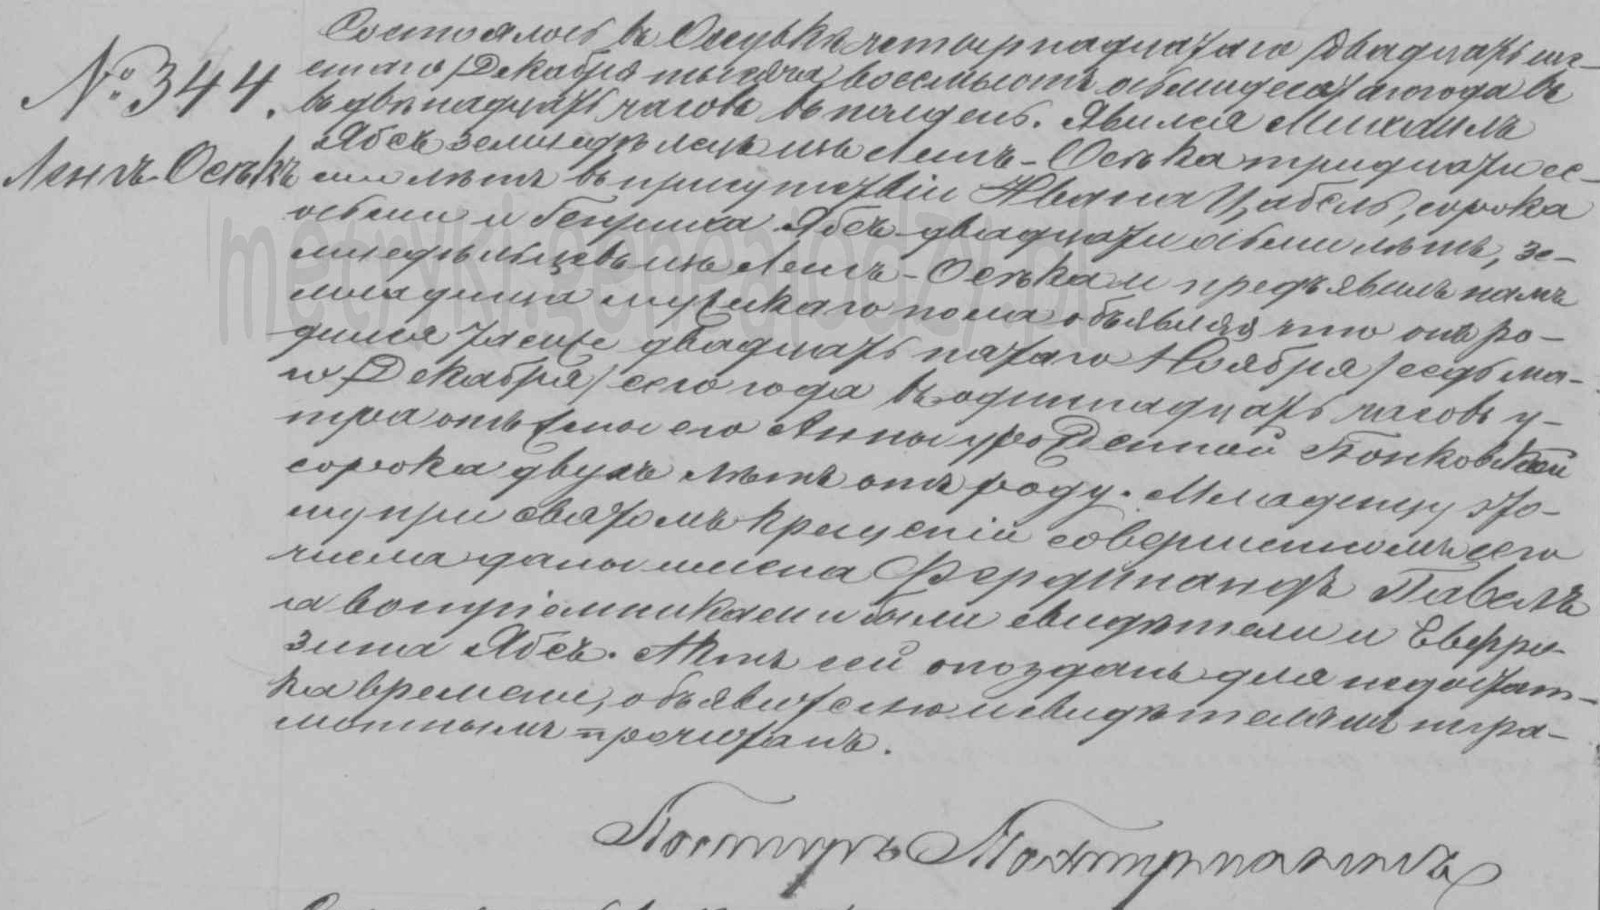 № 344.
Ленч-Оскѣ
Состоялось въ Осускѣ четырнадцатаго /двадцать ше-
стаго/ Декабря тысяча восемьсотъ осьмидесятаго года въ
въ двѣнадцать часовъ въ полдень. Явился Михаилъ
Ябсъ земледѣлецъ изъ Ленчъ-Оська тридцати се-
ми лѣтъ въ присутствіи Ивана Цабель, сорока
осьми и Генриха Ябсъ двадцати осьми лѣтъ, зе-
мледѣльцевъ изъ Ленчъ-Оська и предъявилъ намъ
младенца мужскаго пола объявляя что онъ ро-
дился тамже двадцать пятаго Ноября /седьма-
го Декабря/ сего года въ одиннадцать часовъ у-
тра отъ жены его Анны урожденной Понковской
сорока двухъ лѣтъ отъ роду. Младенцу это-
му при святомъ крещеніи совершенномъ сего
числа даны имена Фердинандъ Павелъ
а воспріемниками были свидѣтели и Евфро-
зина Ябсъ. Актъ сей опозданъ для недостат-
ка времени, объявителю и свидѣтелямъ негра-
мотнымъ прочитанъ.
Пасторъ
metryki.genealodzy.pl